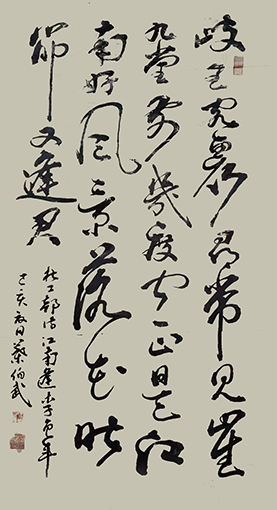 岐王宅裏尋常見崔
九堂前幾度聞正是江
南好風景落花時
節又逢君
杜工部詩江南逢李龟年
己亥日蔡伯武